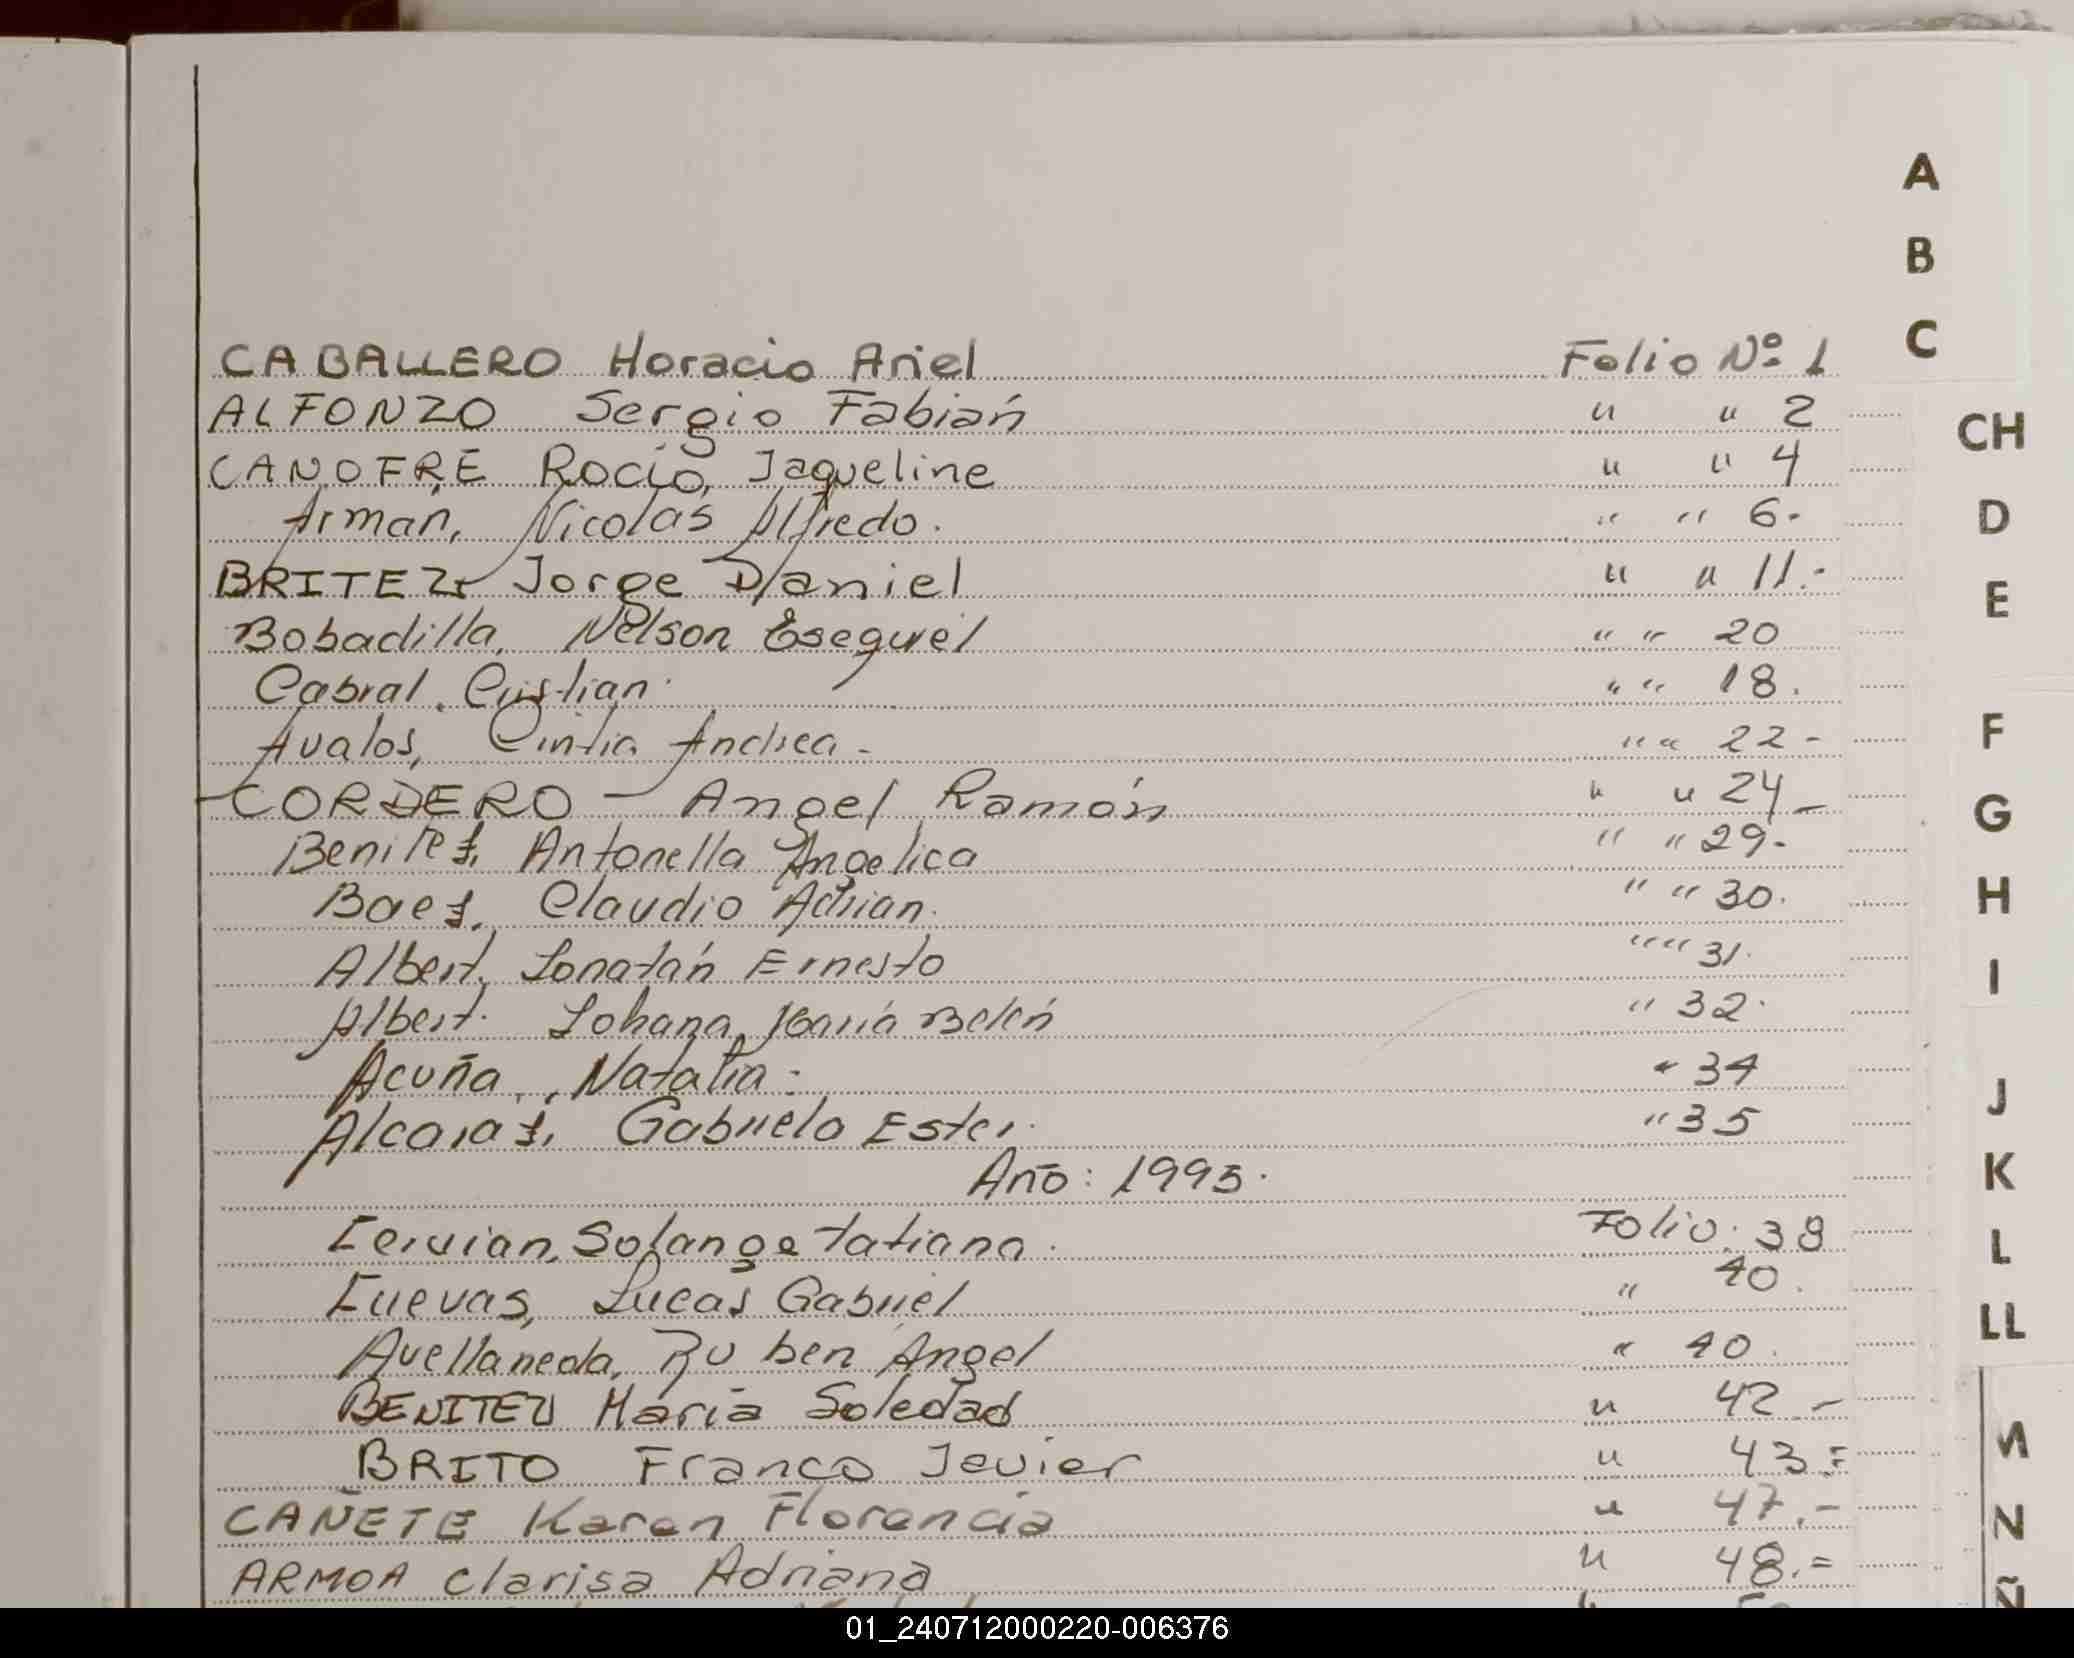 A
B
C
CH
D
E
F
G
H
I
J
K
L
LL
M
N
Ñ
CABALLERO Horacio Ariel Folio Nº 1
ALFONZO Sergio Fabián " " 2
CANOFRE Rocío Jaqueline " " 4
Arman, Nicolás Alfredo. " " 6-
BRITEZ Jorge Daniel " " 11.-
Bobadilla, Nelson Esequiel " " 20
Cabral, Cristian. " " 18.
Avalos, Cintia Andrea - " " 22-
CORDERO - Angel Ramón " " 24-
Benitez, Antonella Angelica " " 29-
Baez, Claudio Adrian. " " 30.
Albert, Jonatán Ernesto " " 31.
Albert. Johana, María Belén " 32.
Acuña, Natalia - " 34
Alcaraz, Gabriela Ester. " 35
Año: 1995.
Cervian, Solange Tatiana. Folio: 38
Cuevas, Lucas Gabriel " 40.
Avellaneda, Ruben Angel " 40.
BENITEZ María Soledad " 42.-
BRITO Franco Javier " 43.=
CAÑETE Karen Florencia " 47.-
ARMOA Clarisa Adriana " 48.=
01_240712000220-006376